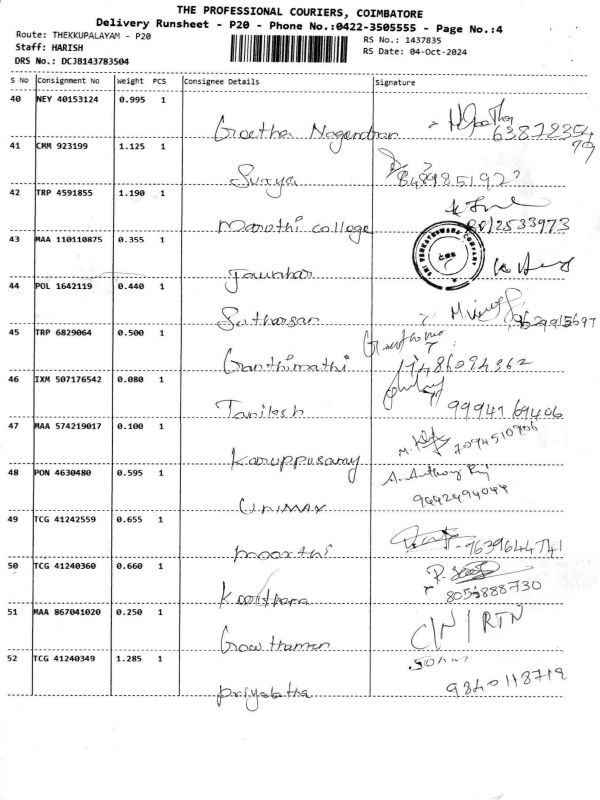 THE PROFESSIONAL COURIERS, COIMBATORE
Delivery Runsheet - P20 - Phone No.:0422-3505555 - Page No.:4
Route: THEKKUPALAYAM - P20
RS No.: 1437835
Staff: HARISH
RS Date: 04-Oct-2024
DRS No.: DCJB143783504
S No Consignment No Weight PCS Consignee Details Signature
40 NEY 40153124 0.995 1
Geetha Nagendran
41 CMM 923199 1.125 1
Surya
42 TRP 4591855 1.190 1
marathi college
43 MAA 110110875 0.355 1
Jawahar
44 POL 1642119 0.440 1
Sutharsan
45 TRP 6829064 0.500 1
Ganthimathi
46 IXM 507176542 0.080 1
Tanilesh 99941 69406
47 MAA 574219017 0.100 1
Karuppusamy 7094510906
48 PON 4630480 0.595 1
UniMAX
49 TCG 41242559 0.655 1
moorthi 7639644741
50 TCG 41240360 0.660 1
8055888730
51 MAA 867041020 0.250 1
Gowthaman C/N/RTN
52 TCG 41240349 1.285 1
Priyalatha 9840118718